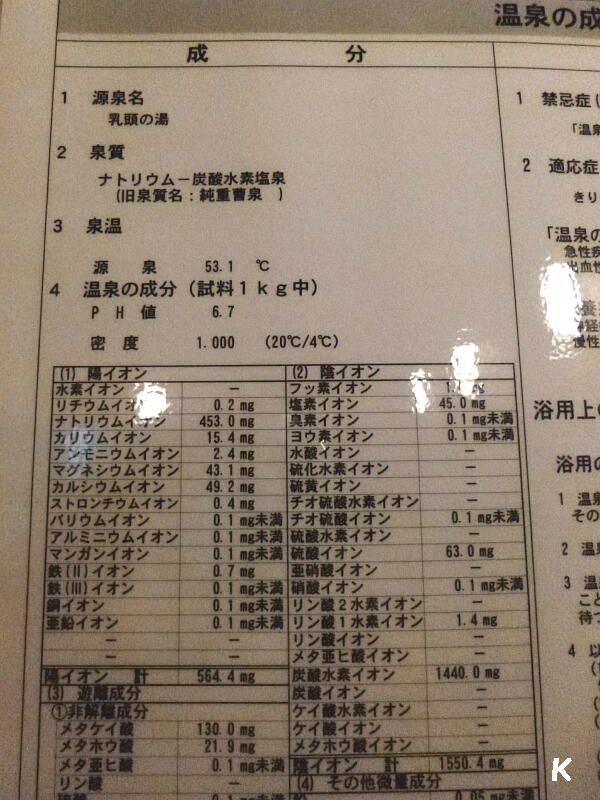 温泉の成
成 分
1 源泉名
乳頭の湯
2 泉質
ナトリウム－炭酸水素塩泉
(旧泉質名：純重曹泉 )
3 泉温
源 泉 53.1 ℃
4 温泉の成分（試料1kg中）
PH値 6.7
密度 1.000 (20℃/4℃)
(1) 陽イオン
水素イオン －
リチウムイオン 0.2 mg
ナトリウムイオン 453.0 mg
カリウムイオン 15.4 mg
アンモニウムイオン 2.4 mg
マグネシウムイオン 43.1 mg
カルシウムイオン 49.2 mg
ストロンチウムイオン 0.4 mg
バリウムイオン 0.1 mg未満
アルミニウムイオン 0.1 mg未満
マンガンイオン 0.1 mg未満
鉄(II)イオン 0.7 mg
鉄(III)イオン 0.1 mg未満
銅イオン 0.1 mg未満
亜鉛イオン 0.1 mg未満
－ －
－ －
陽イオン 計 564.4 mg
(3) 遊離成分
①非解離成分
メタケイ酸 130.0 mg
メタホウ酸 21.9 mg
メタ亜ヒ酸 0.1 mg未満
リン酸 －
(2) 陰イオン
フッ素イオン
塩素イオン 45.0 mg
臭素イオン 0.1 mg未満
ヨウ素イオン 0.1 mg未満
水酸イオン －
硫化水素イオン －
硫黄イオン －
チオ硫酸水素イオン －
チオ硫酸イオン 0.1 mg未満
硫酸水素イオン －
硫酸イオン 63.0 mg
亜硝酸イオン －
硝酸イオン 0.1 mg未満
リン酸2水素イオン －
リン酸1水素イオン 1.4 mg
リン酸イオン －
メタ亜ヒ酸イオン －
炭酸水素イオン 1440.0 mg
炭酸イオン －
ケイ酸水素イオン －
ケイ酸イオン －
メタホウ酸イオン －
陰イオン 計 1550.4 mg
(4) その他微量成分
0.05 mg未満
1 禁忌症(
「温泉
2 適応症
きり
「温泉の
急性疾
出血性
慢性
浴用上の
浴用の
1 温泉
その
2 温泉
3 温泉
こと
待つ
4 以
K